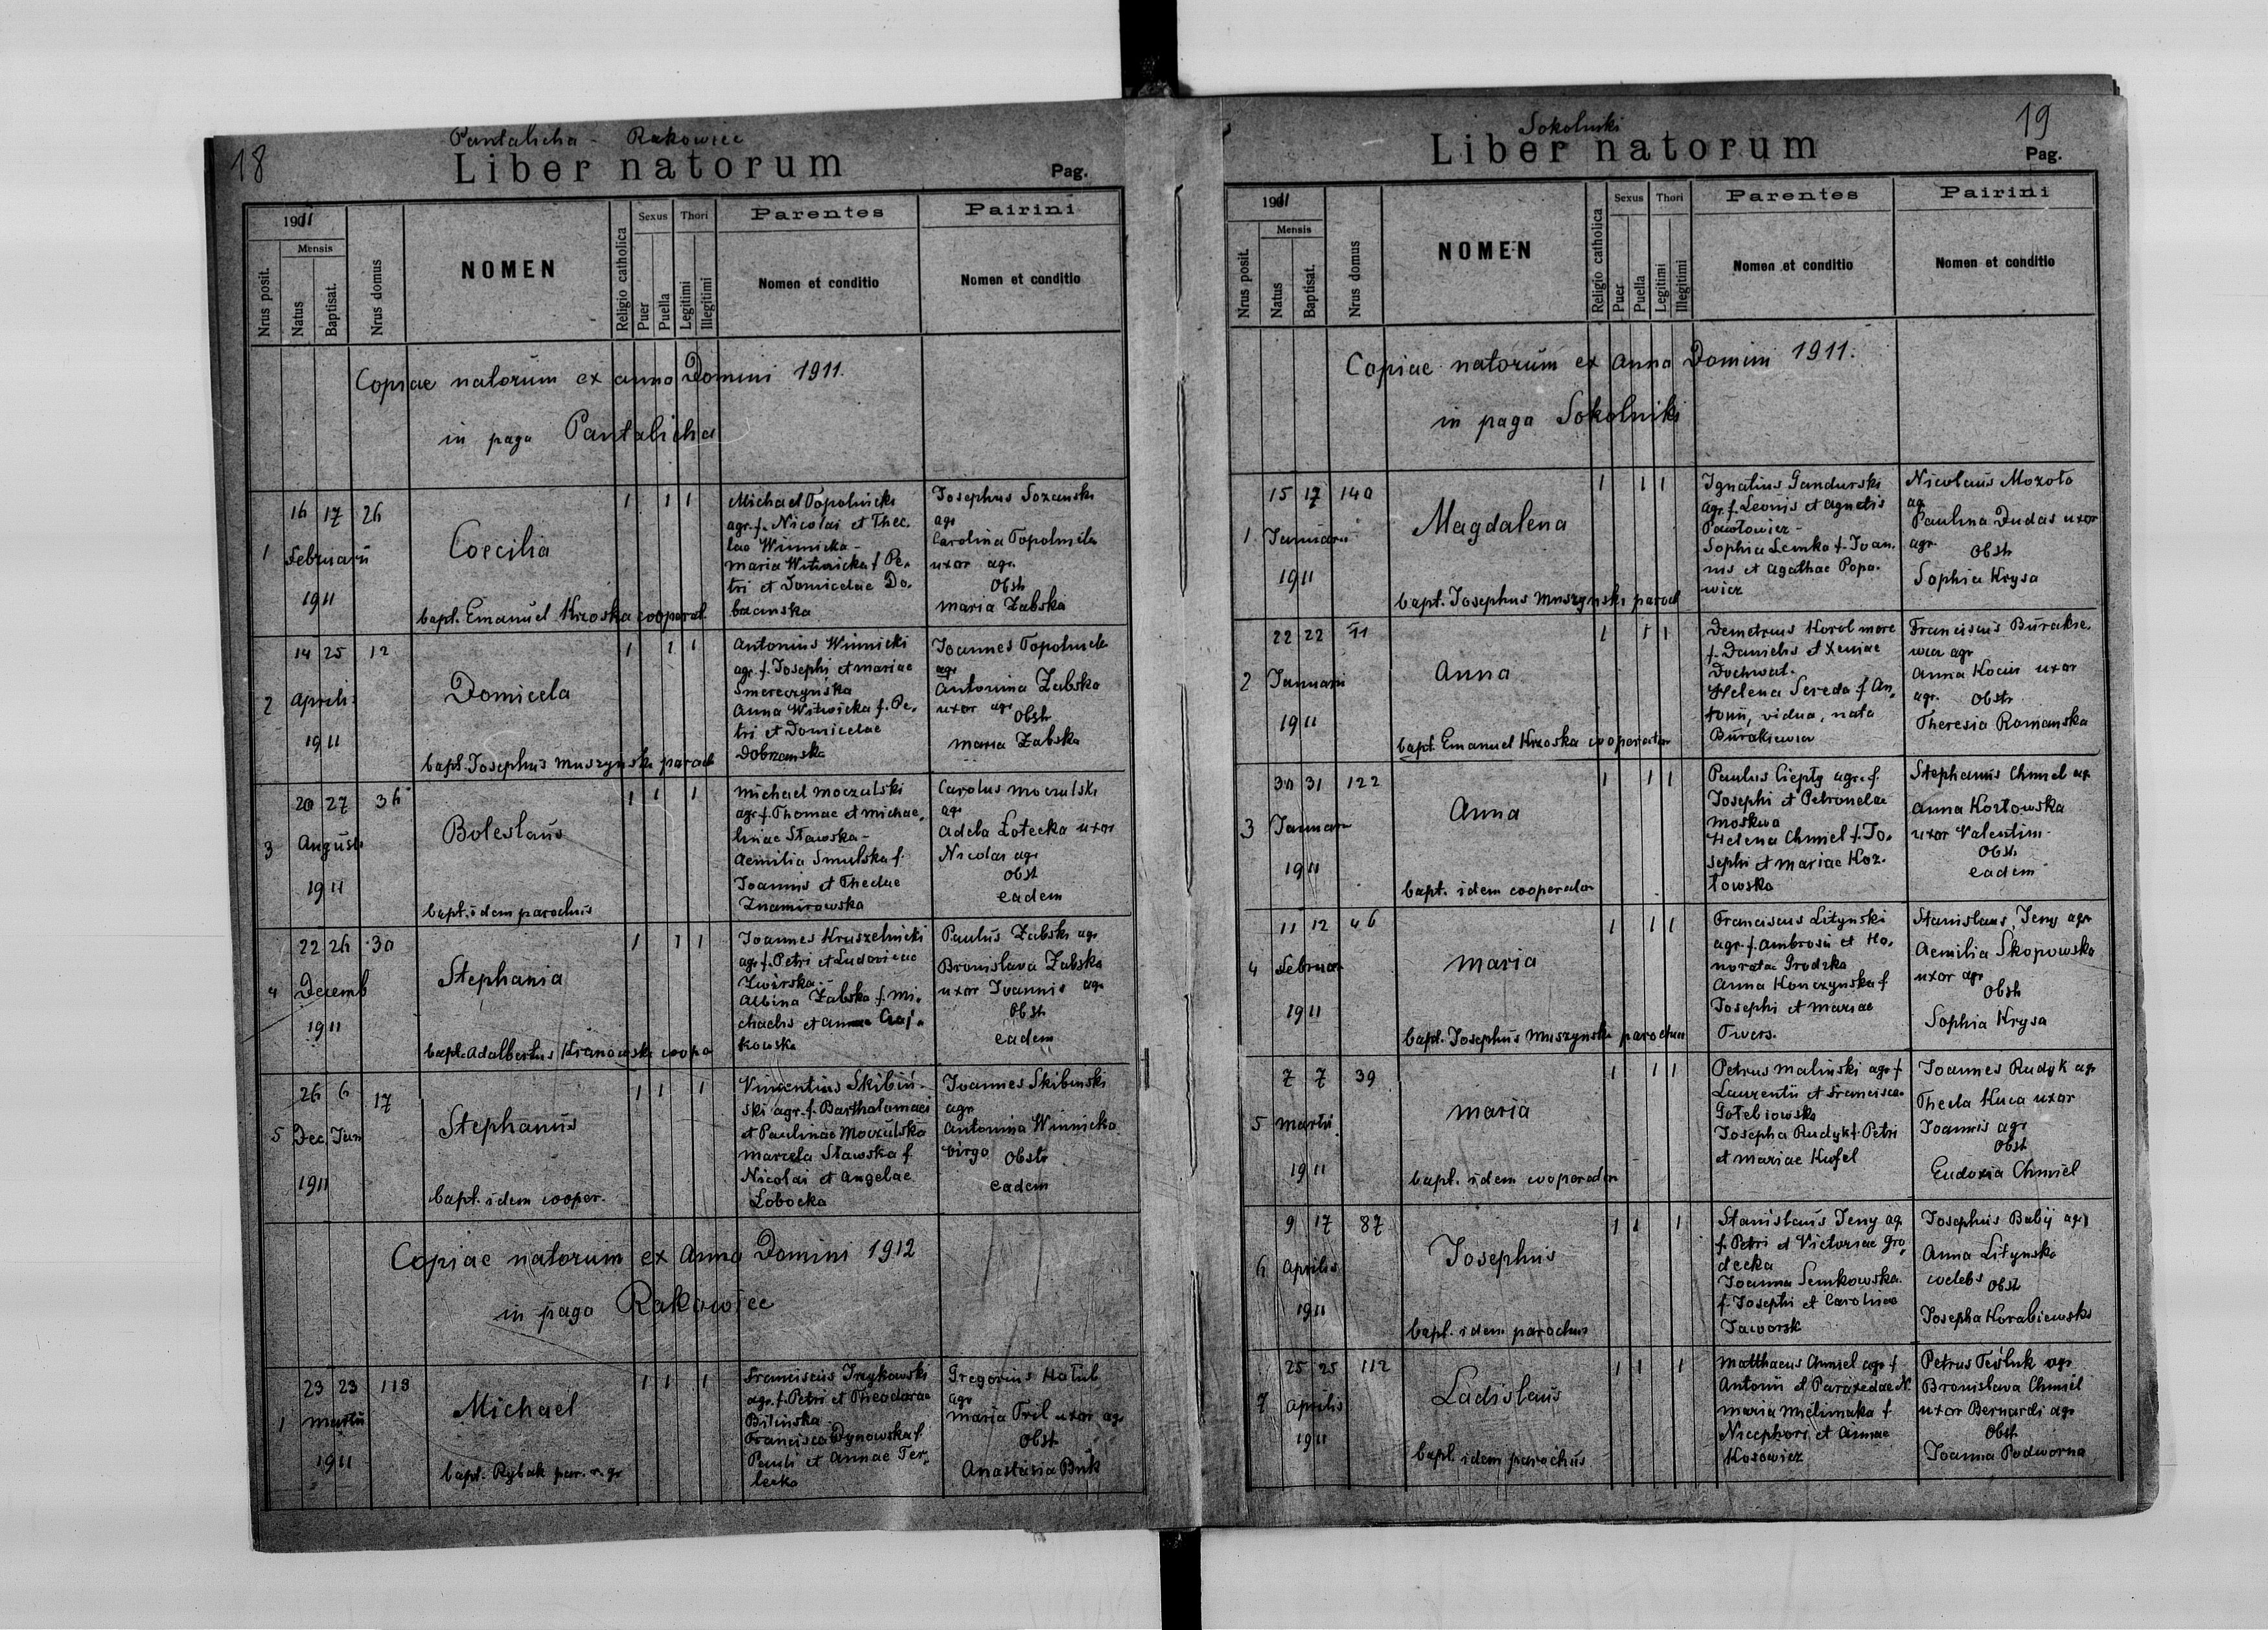 18
Pantalicha - Rakowiec
Liber natorum
Pag.
1911
Nrus posit.
Mensis
Natus
Baptisat.
Nrus domus
NOMEN
Religio catholica
Sexus
Puer
Puella
Thori
Legitimi
Illegitimi
Parentes
Nomen et conditio
Pairini
Nomen et conditio
Copiae natorum ex anno Domini 1911.
in pago Pantalicha
1
16 17 26
Februarii
1911
Coecilia
bapt. Emanuel Krzoska cooperat.
1 1 1
Michael Topolnicki
agr. f. Nicolai et Thec.
lae Winnicka -
Maria Witwicka f. Pe.
tri et Domicelae Do.
brzanska
Josephus Sozanski
agr
Carolina Topolnicka
uxor agr.
Obst
Maria Zabska
2
14 25 12
Aprilis
1911
Domicela
bapt. Josephus Muszynski paroch
1 1 1
Antonius Winnicki
agr. f. Josephi et Mariae
Smereczynska
Anna Witwicka f. Pe.
tri et Domicelae
Dobrzanska
Joannes Topolnicki
agr
Antonina Zabska
uxor agr
Obstr
Maria Zabska
3
20 27 36
Augusti
1911
Boleslaus
bapt. idem parochus
1 1 1
Michael Moczulski
agr. f. Thomae et Michae.
linae Stawska -
Aemilia Smulska f.
Joannis et Theclae
Znamirowska
Carolus Moczulski
agr
Adela Łotecka uxor
Nicolai agr
Obst
eadem
4
22 26 30
Decemb
1911
Stephania
bapt. Adalbertus Kranowski coopa
1 1 1
Joannes Kruszelnicki
agr. f. Petri et Ludovicae
Zwirska -
Albina Zabska f. Mi.
chaelis et Annae Czaj.
kowska
Paulus Zabski agr
Bronislava Zabska
uxor Joannis agr
Obst
eadem
5
26 6 17
Dec. Jan
1911
Stephanus
bapt. idem cooper.
1 1 1
Vincentius Skibiń-
ski agr. f. Bartholomaei
et Paulinae Moczulska
Marcela Stawska f.
Nicolai et Angelae
Łobocka
Joannes Skibinski
agr
Antonina Winnicka
virgo
Obstr
eadem
Copiae natorum ex Anno Domini 1912
in pago Rakowiec
1
23 23 113
Martii
1911
Michael
bapt. Rybak par. r. gr
1 1 1
Franciscus Irzykowski
agr. f. Petri et Theodorae
Bilinska
Francisca Dynowska f.
Pauli et Annae Ter.
lecka
Gregorius Hałub
agr
Maria Tril uxor agr
Obst
Anastasia Buk
19
Sokolniki
Liber natorum
Pag.
1911
Nrus posit.
Mensis
Natus
Baptisat.
Nrus domus
NOMEN
Religio catholica
Sexus
Puer
Puella
Thori
Legitimi
Illegitimi
Parentes
Nomen et conditio
Pairini
Nomen et conditio
Copiae natorum ex Anno Domini 1911.
in pago Sokolniki
1
15 17 140
Januarii
1911
Magdalena
bapt. Josephus Muszynski paroch
1 1 1
Ignatius Gandurski
agr. f. Leonis et Agnetis
Pawłowicz -
Sophia Lemka f. Joan.
nis et Agathae Popo.
wicz
Nicolaus Mozoło
ag
Paulina Dudas uxor
agr.
Obstr
Sophia Krysa
2
22 22 11
Januarii
1911
Anna
bapt. Emanuel Krzoska cooperator
1 1 1
Demetrius Korol more
f. Danielis et Xeniae
Dochwat.
Helena Sereda f. An.
tonii, vidua, nata
Burakiewicz
Franciscus Burakie.
wicz agr
Anna Kociu uxor
agr.
Obstr
Theresia Romanska
3
30 31 122
Januar
1911
Anna
bapt. idem cooperator
1 1 1
Paulus Ciepły agr. f.
Josephi et Petronelae
Moskwa
Helena Chmiel f. Jo.
sephi et Mariae Koz.
łowska
Stephanus Chmiel agr
Anna Kozłowska
uxor Valentim.
Obst
eadem
4
11 12 46
Februar
1911
Maria
bapt. Josephus Muszynski parochus
1 1 1
Franciscus Lityński
agr. f. Ambrosii et Ho.
noratae Grodzka
Anna Konczynska f
Josephi et Mariae
Twers.
Stanislaus Jeny agr
Aemilia Skopowska
uxor agr
Obst
Sophia Krysa
5
7 7 39
Martii
1911
Maria
bapt. idem cooperator
1 1 1
Petrus Malinski agr f
Laurentii et Francisca
Gołebiowska
Josepha Rudyk f. Petri
et Mariae Kufel
Joannes Rudyk agr
Thecla Kuca uxor
Joannis agr
Obst
Eudoxia Chmiel
6
9 17 87
Aprilis
1911
Josephus
bapt. idem parochus
1 1 1
Stanislaus Jeny ag
f. Petri et Victoriae Gro
decka
Joanna Semkowska
f. Josephi et Carolinae
Jaworsk
Josephus Babij agr
Anna Litynska
coelebs
Obst
Josepha Korabiewska
7
25 25 112
Aprilis
1911
Ladislaus
bapt. idem parochus
1 1 1
Matthaeus Chmiel agr f
Antonii et Paraxedae N.
Maria Mielimaka f
Nicephori et Annae
Kosowicz
Petrus Teśluk agr
Bronislava Chmiel
uxor Bernardi agr
Obst
Joanna Podworna